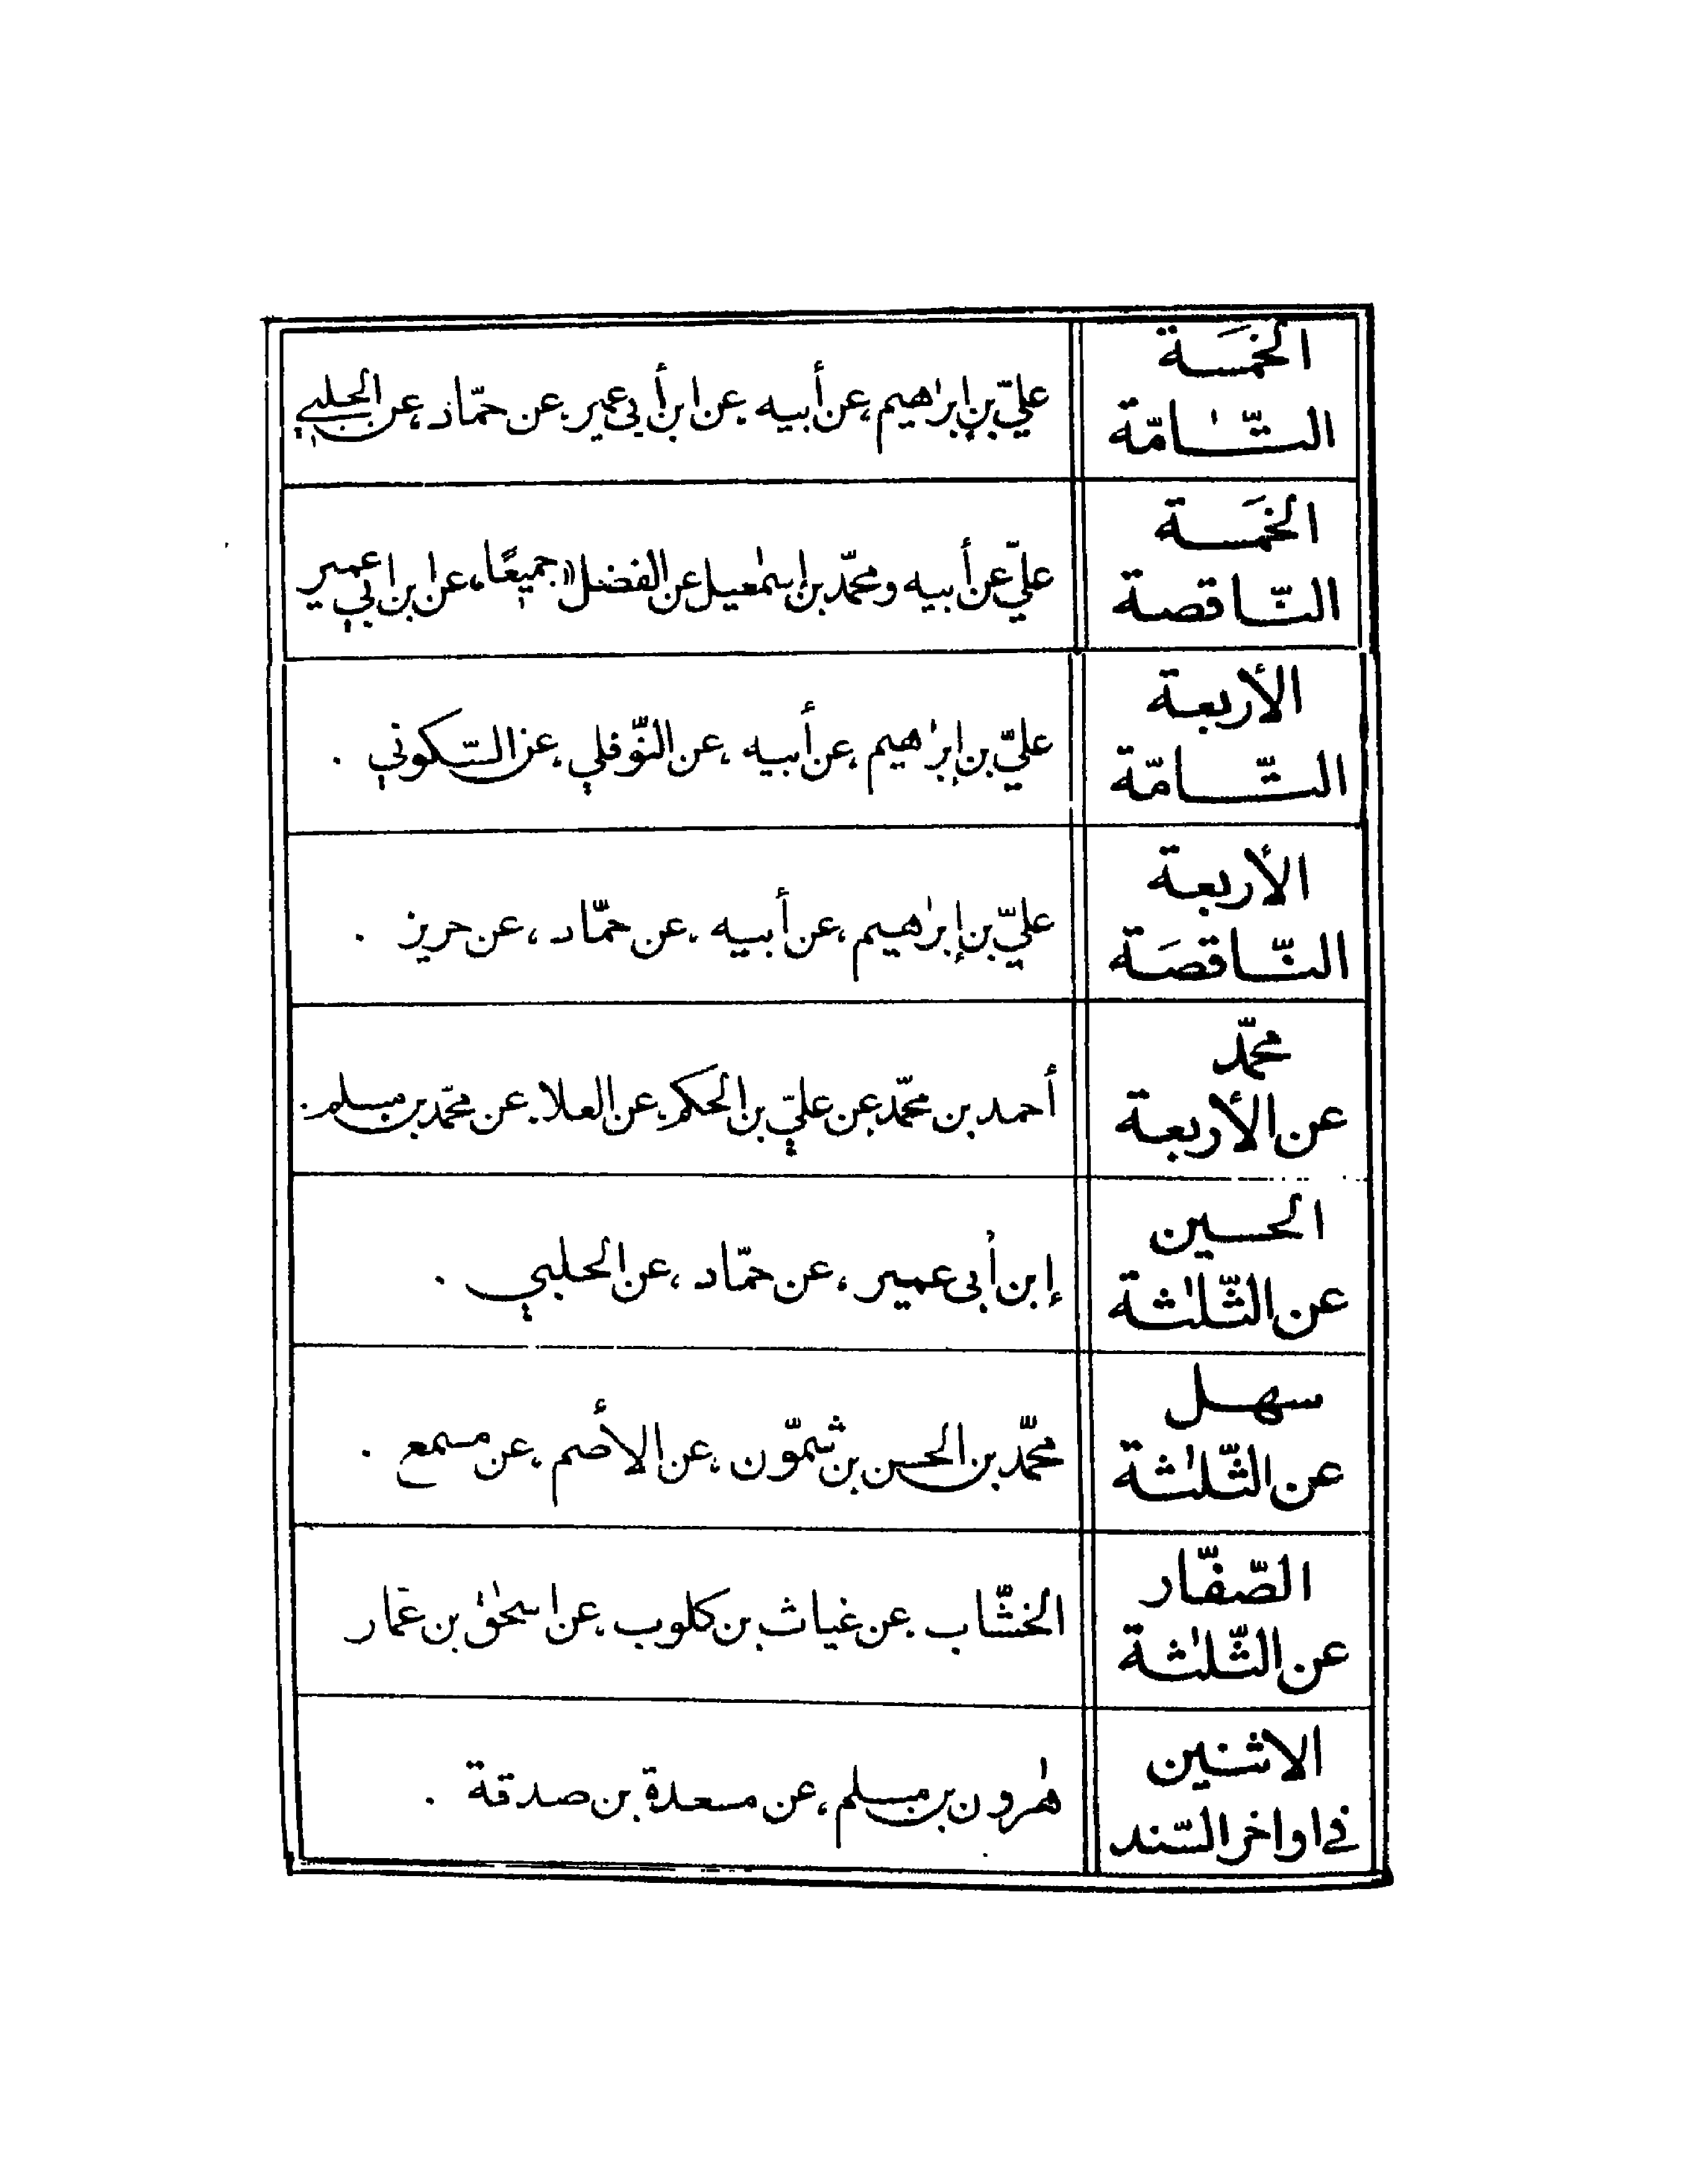 الخمَسة
التّٰامّة
عليّ بن إبرٰاهيم، عن أبيه، عن ابن أبي عمير، عن حمّاد، عن الحلبي
الخمَسة
النّاقصة
عليّ عن أبيه ومحمّد بن إسمٰعيل عن الفضل «جميعًا، عن ابن ابي عمير
الأربعة
التّامّة
عليّ بن إبرٰاهيم، عن أبيه، عن النّوفلي، عن السّكوني .
الأربعة
النّاقصَة
عليّ بن إبرٰاهيم، عن أبيه، عن حمّاد، عن حريز .
محمّد
عن الأربعة
أحمد بن محمّد عن عليّ بن الحكم، عن العلا، عن محمّد بن مسلم .
الحسين
عن الثّلٰثة
إبن أبي عمير، عن حمّاد، عن الحلبي .
سهل
عن الثّلٰثة
محمّد بن الحسن بن شمّون، عن الأصم، عن مسمع .
الصّفّار
عن الثّلٰثة
الخشّاب، عن غياث بن كلوب، عن اسحٰق بن عمّار
الاثنين
في اواخر السّند
هٰرون بن مسلم، عن مسعدة بن صدقة .